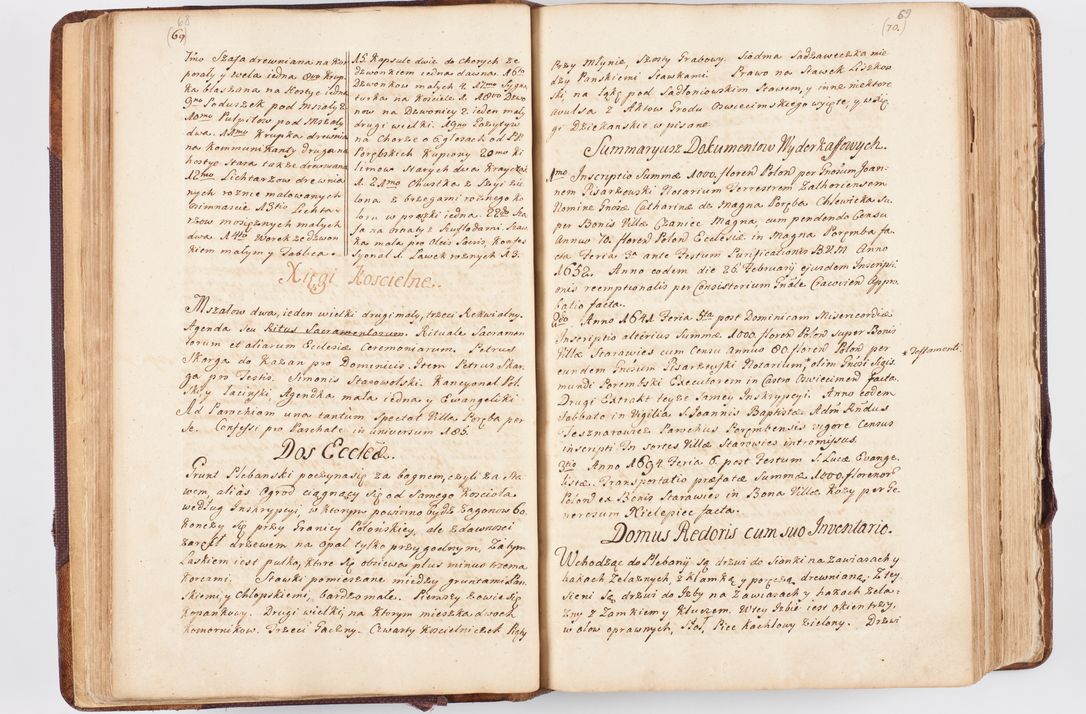 68
(69)
7mo Szafa drewniana na Kor
poraly y wela iedna 8vo Krup
ka blaszana na Hostye iedna
9no Poduszek pod Mszały 2.
10mo Pulpitow pod Mszały
dwa. 11mo Krupka drewnia
na Kommunikanty druga na
hostye Stara także drewniana
12mo Lichtarzow drewnia
nych roznie malowanych
13tio Lichta
rzow mosiężnych małych
dwa. 14to Worek ze dzwon
kiem małym y Tablica.
15. Kapsule dwie do chorych ze
dzwonkiem iedna dawna. 16to
Dzwonkow małych 4. 17mo Sygna
turka na Kościele 1. 18vo Dzwo
now na Dzwonicy 2. ieden mały
drugi wielki. 19no Pozytyw
na Chorze o 6 głosach od PP.
Porębskich Kupiony 20mo Ki
limow Starych dwa
1. 21mo Chustka z
lona z brzegami roznego ko
loru w prążki iedna. 22do Sza
fa na Ornaty z Szufladami. Szaw
ka mała pro Oleis Sacris, Konfes
syonał 1. Ławek roznych 13.
Xięgi Koscielne.
Mszalow dwa, ieden wielki drugi mały, trzeci Rekwialny.
Agenda Seu Ritus Sacramentorum. Rituale Sacramen
torum et aliarum Ecclesiæ Ceremoniarum. Petrus
Skarga do Kazan pro Dominicis. Item Petrus Skar
ga pro Festis. Simonis Starowolski. Kancyonał Pol
ski y Łaciński, Agendka mała iedna y Ewangeliki
Ad Parochiam una tantum Spectat Villa Poręba per
se. Confessi pro Paschate in universum 185.
Dos Eccleæ.
Grunt Plebanski poczyna się za bagnem, czyli za Sta
wem, alias Ogrod ciągnący się od Samego Kościoła
według Inskrypcyi, w ktorym powinno bydź zagonow 60.
kończy się przy Granicy Polońskiey, ale z dawności
zarosł drzewem na opal tylko przygodnym, Za tym
Laskiem iest pułko, ktore się obsiewa plus minus trzema
korcami. Stawki pomieszane między gruntami Pan
skiemi, y Chłopskiemi, bardzo małe. Pierwszy zowie się
Kopankowy. Drugi wielki, na ktorym mieszka dwoch
komornikow. Trzeci Gaczny. Czwarty Koscielniczek Piąty
69
(70.)
Przy Młynie, Szosty Grabowy. Siodma Sadzaweczka mie
dzy Pańskiemi Stawkami. Prawo na Stawek Liszkow
ski na łąkę pod Sadloniowskim Stawem, y inne niektore
avulsa z Aktow Grodu Oswiecimskiego wyięte, y w xię
gi Dziekanskie wpisane.
Summaryusz Dokumentow Wyderkaffowych.
1mo Inscriptio Summæ 1000. floren Polon per Gnosum Joan-
nem Pisarzewski Notarium Terrestrem Zathoriensem
Nomine Gnosæ Catharinæ de Magna Poręba Chlewicka Su
per Bonis Villæ Czaniec Magna, cum pendendo Censu
Annuo 70. floren Polon Ecclesiæ in Magna Poręmba fa
cta Feria 3a ante Festum Purificationis B.V.M. Anno
1652. Anno eodem die 26. Februarij ejusdem Inscripti
onis reemptionalis per Consistorium Gnale Cracovien Appro
batio facta.
2do Anno 1641. Feria 5ta post Dominicam Misericordiæ
Inscriptio alterius Summæ 1000. floren Polon super Bonis
Villæ Starawies cum Censu Annuo 80. floren Polon per
eundem Gnosum Pisarzewski Notarium,* olim Gnosi Sigis
mundi Porembski Executorem in Castro Oswiecimen facta.
* Testamenti
Drugi Extrakt teyże Samey Inskrypcyi. Anno eodem
Sabbato in Vigilia S. Joannis Baptistæ Admˡ Rndus
Tesznarowicz Parochus Porembensis vigore Census
inscripti In sortes Villæ Starowies intromissus.
3tio Anno 1694. Feria 6. post Festum S. Lucæ Evange-
listæ. Transportatio præfatæ Summæ 1000. florenor
Polon ex Bonis Starawies in Bona Villæ Kozy per Ge
nerosum Kielepiec facta.
Domus Rectoris cum suo Inventario.
Wchodząc do Plebanij są drzwi do Sionki na Zawiasach y
hakach Żelaznych, z klamką y poręczą drewnianą, Z tey
Sieni Są drzwi do Izby na Zawiasach y hakach żela-
zny z Zamkiem y Kluczem. W tey Izbie iest okien trzy,
w ołow oprawnych, Stoł, Piec Kachlowy zielony. Drzwi